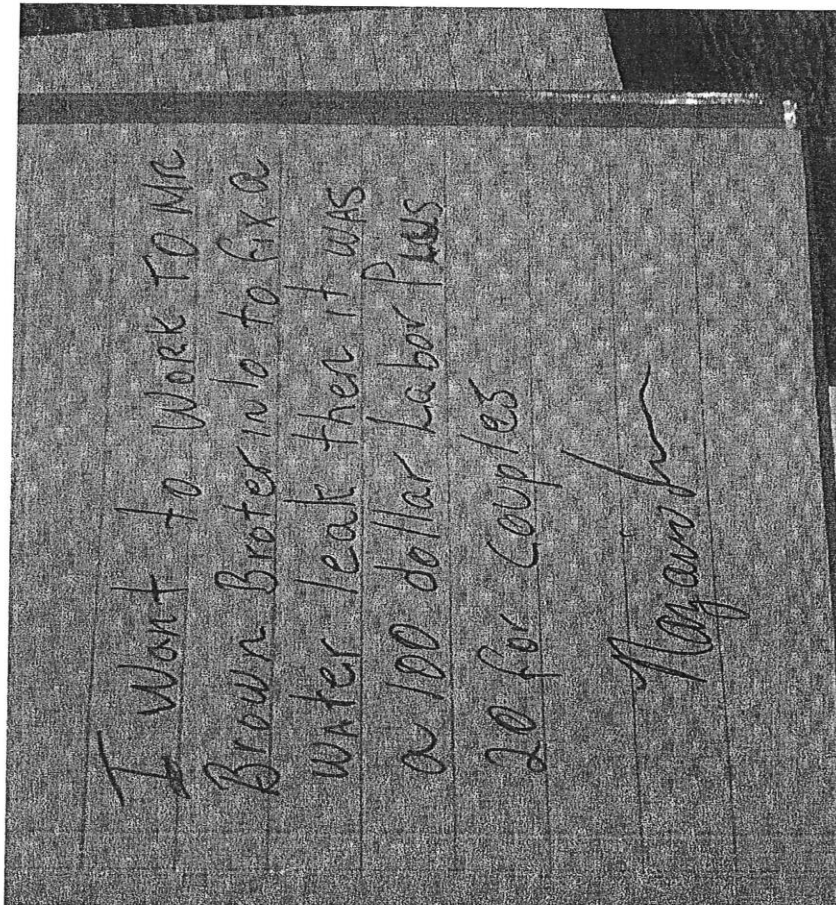 I Want to Work TO Mr
Brown Broter inlo to fix a
WAter leak then it WAS
a 100 dollar Labor Plus
20 for Couples